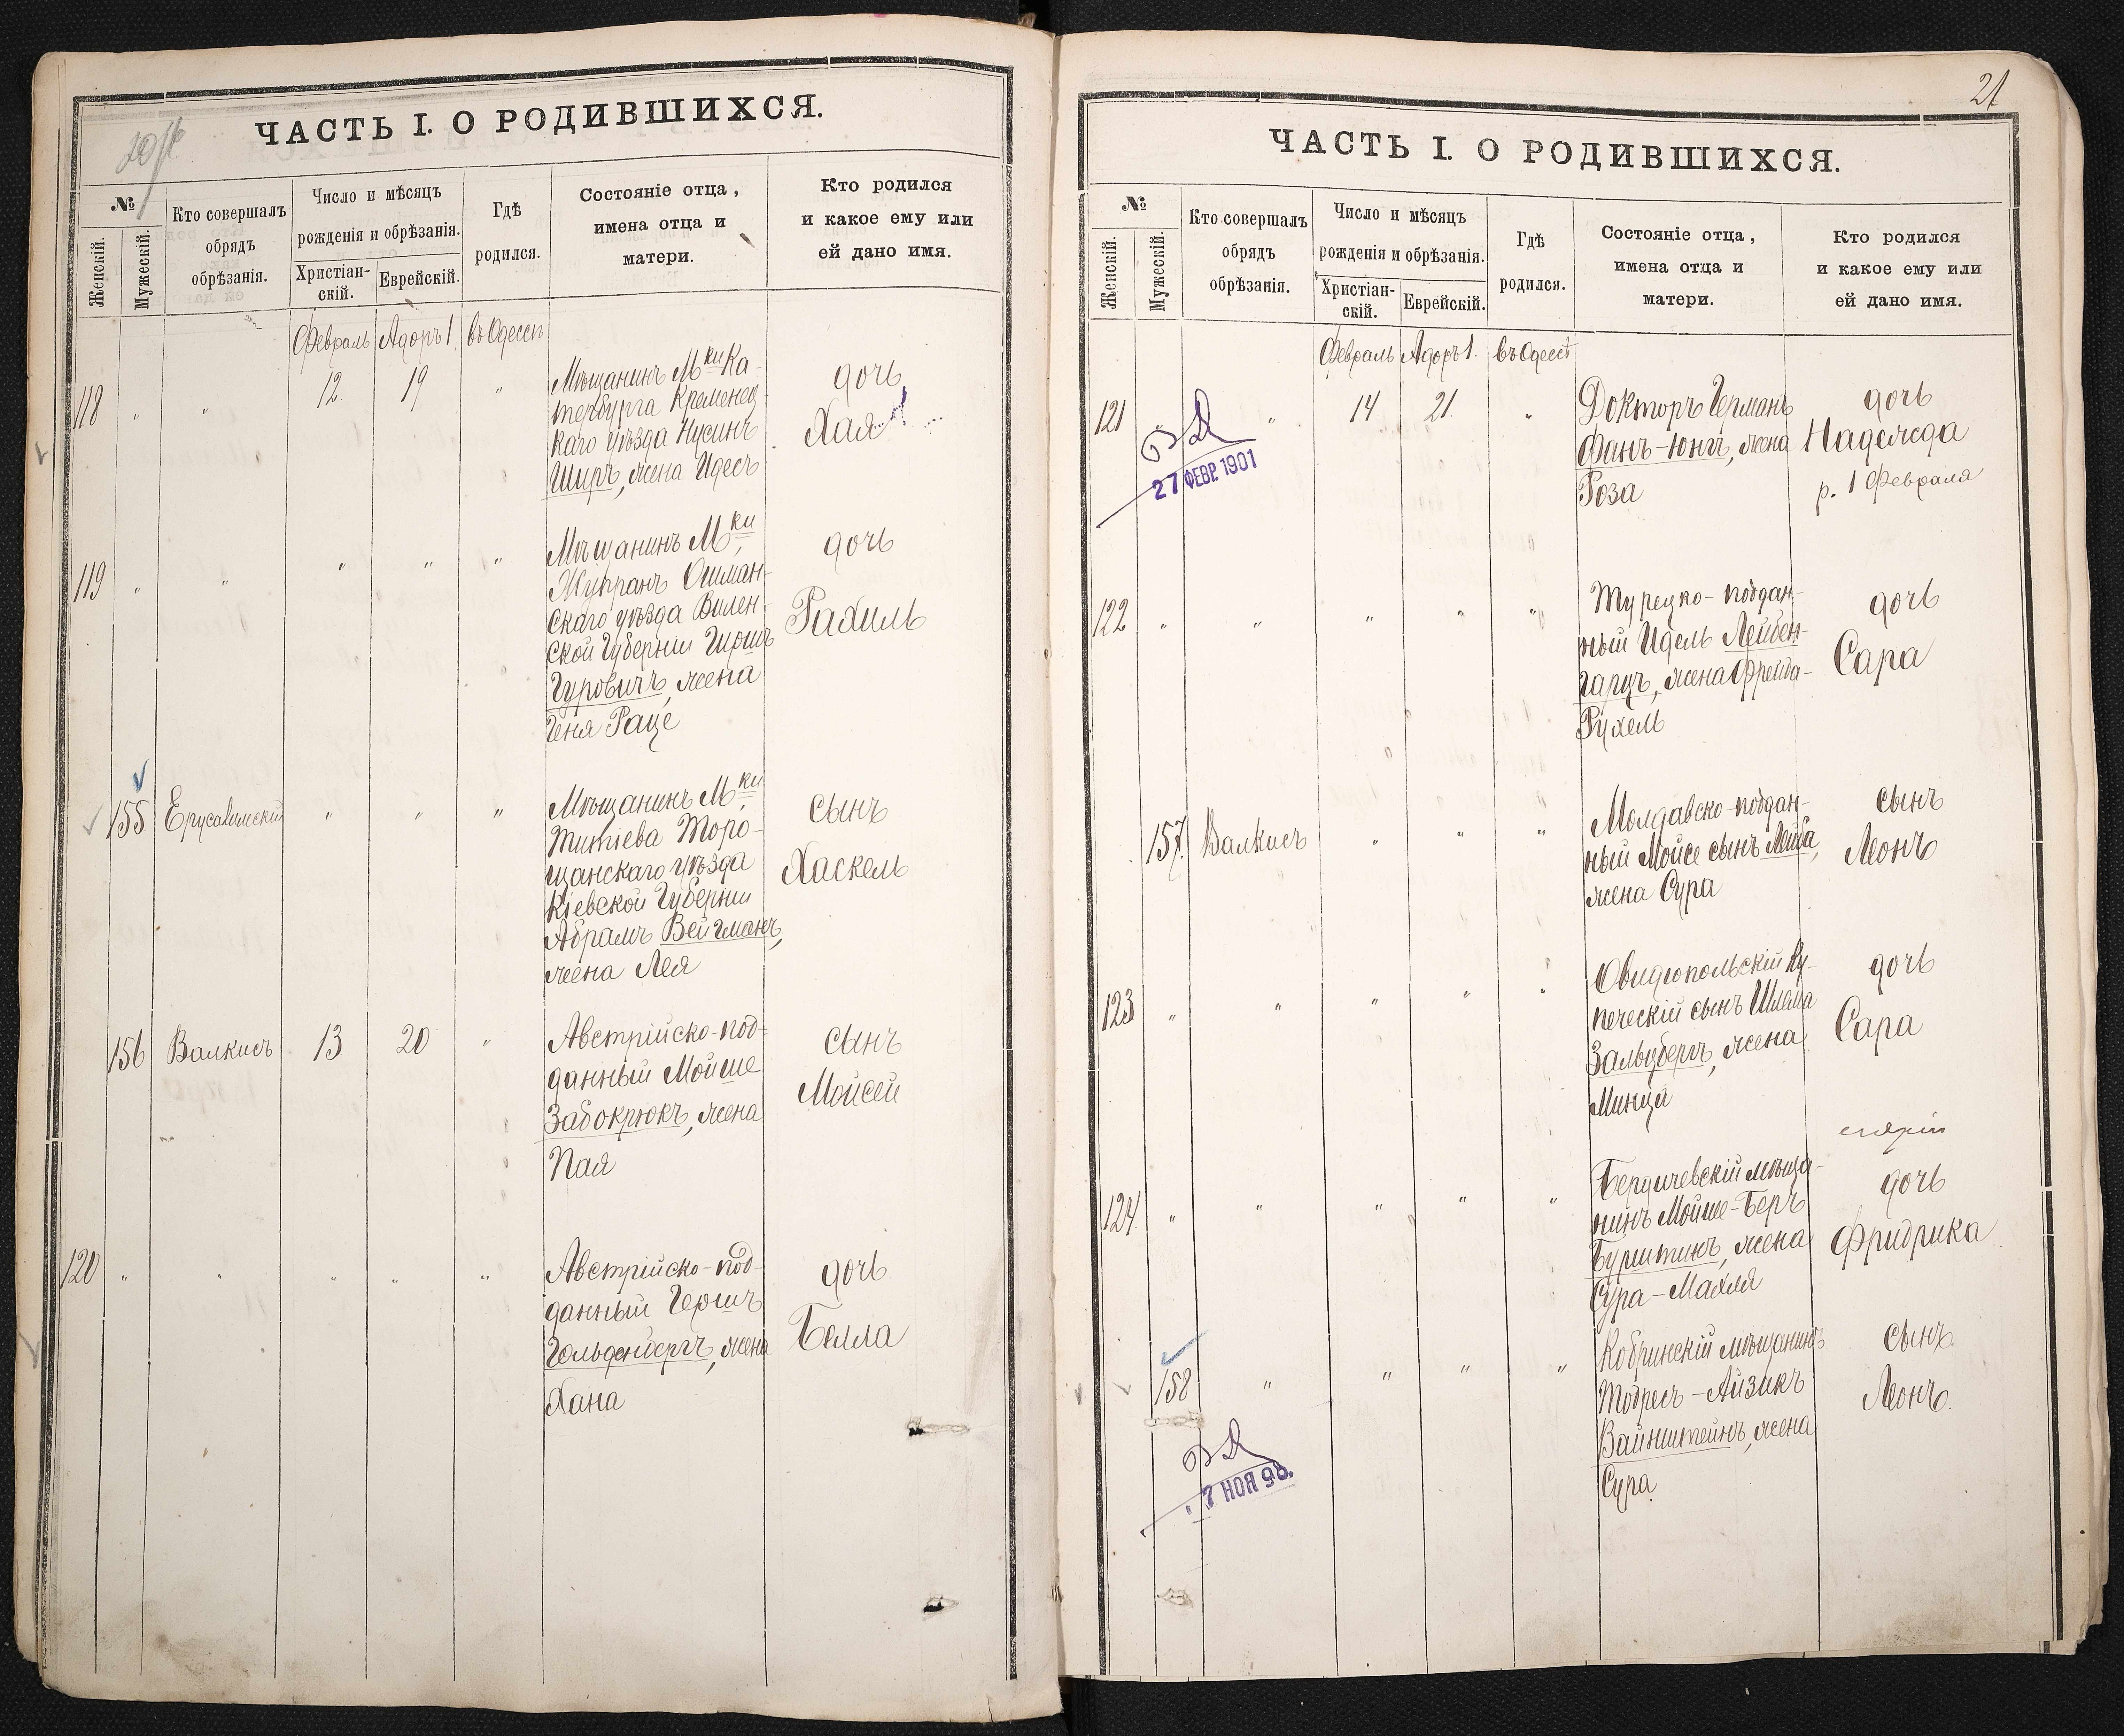 20
ЧАСТЬ I. О РОДИВШИХСЯ.
№
Женскій.
Мужескій.
Кто совершалъ
обрядъ
обрѣзанія.
Число и мѣсяцъ
рожденія и обрѣзанія.
Христіан-
скій.
Еврейскій.
Гдѣ
родился.
Состояніе отца,
имена отца и
матери.
Кто родился
и какое ему или
ей дано имя.
Февраль Адоръ 1. въ Одессѣ
118 " " 12. 19 "
Мѣщанинъ Мки Ка-
тербурга Кременец-
каго уѣзда Нусинъ
Ширъ, жена Идесъ
дочь
Хая
119 " " " " "
Мѣщанинъ Мки
Жупранъ Ошман-
скаго уѣзда Вилен-
ской Губерніи Гиршъ
Гуровичъ, жена
Геня Раце
дочь
Рахиль
155 Ерусалимскій " " "
Мѣщанинъ Мки
Титіева Торо-
щанскаго уѣзда
Кіевской Губерніи
Абрамъ Вейгманъ,
жена Лея
сынъ
Хаскель
156 Валкисъ 13 20 "
Австрійско-под-
данный Мойше
Забокрюкъ, жена
Пая
сынъ
Мойсей
120 " " " " "
Австрійско-под-
данный Гершъ
Гольденбергъ, жена
Хана
дочь
Белла
21
ЧАСТЬ I. О РОДИВШИХСЯ.
№
Женскій.
Мужескій.
Кто совершалъ
обрядъ
обрѣзанія.
Число и мѣсяцъ
рожденія и обрѣзанія.
Христіан-
скій.
Еврейскій.
Гдѣ
родился.
Состояніе отца,
имена отца и
матери.
Кто родился
и какое ему или
ей дано имя.
Февраль Адоръ 1. въ Одессѣ
121 " " 14 21. "
27 ФЕВР. 1901
Докторъ Германъ
Фанъ-Юнгъ, жена
Роза
дочь
Надежда
р. 1 Февраля
122 " " " " "
Турецко-поддан-
ный Идель Лейбен-
гарцъ, жена Фрейда-
Рухель
дочь
Сара
157. Валкисъ " " "
Молдавско-поддан-
ный Мойсе сынъ Лейба,
жена Сура
сынъ
Леонъ
123 " " " " "
Овидіопольскій Ку-
печескій сынъ Шлема
Зальцбергъ, жена
Минца
дочь
Сара
124. " " " " "
Бердичевскій мѣща-
нинъ Мойше-Беръ
Бурштинъ, жена
Сура-Махля
дочь
Фридрика
158 " " " "
7 НОЯ 98.
Кобринскій мѣщанинъ
Тодресъ-Айзикъ
Вайнштейнъ, жена
Сура
сынъ
Леонъ.